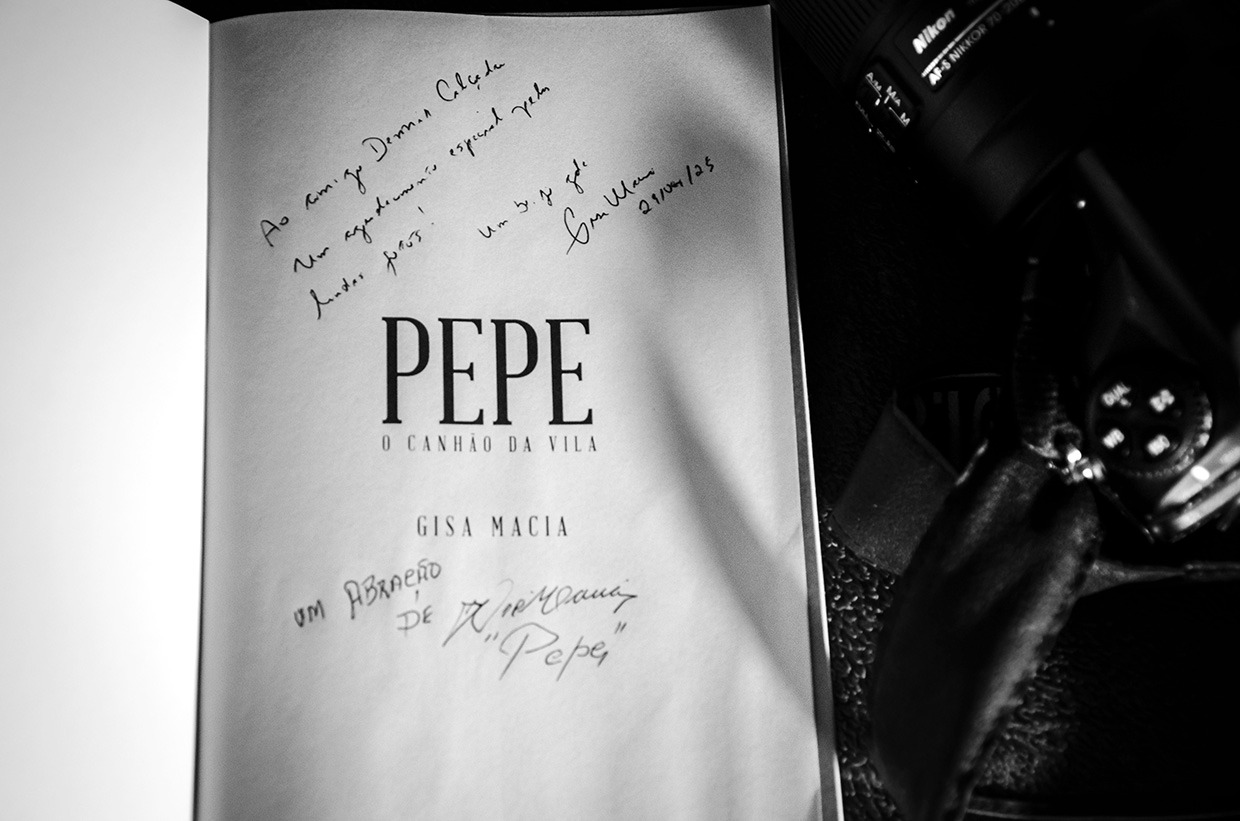 Ao amigo Dennis Calçada
Um agradecimento especial pelas
lindas fotos!
Um bj. gde
Gisa Macia
PEPE
O CANHÃO DA VILA
GISA MACIA
UM ABRAÇÃO
DE
"Pepe"
Nikon
AF-S NIKKOR 70-200
A/M M/A M
DUAL